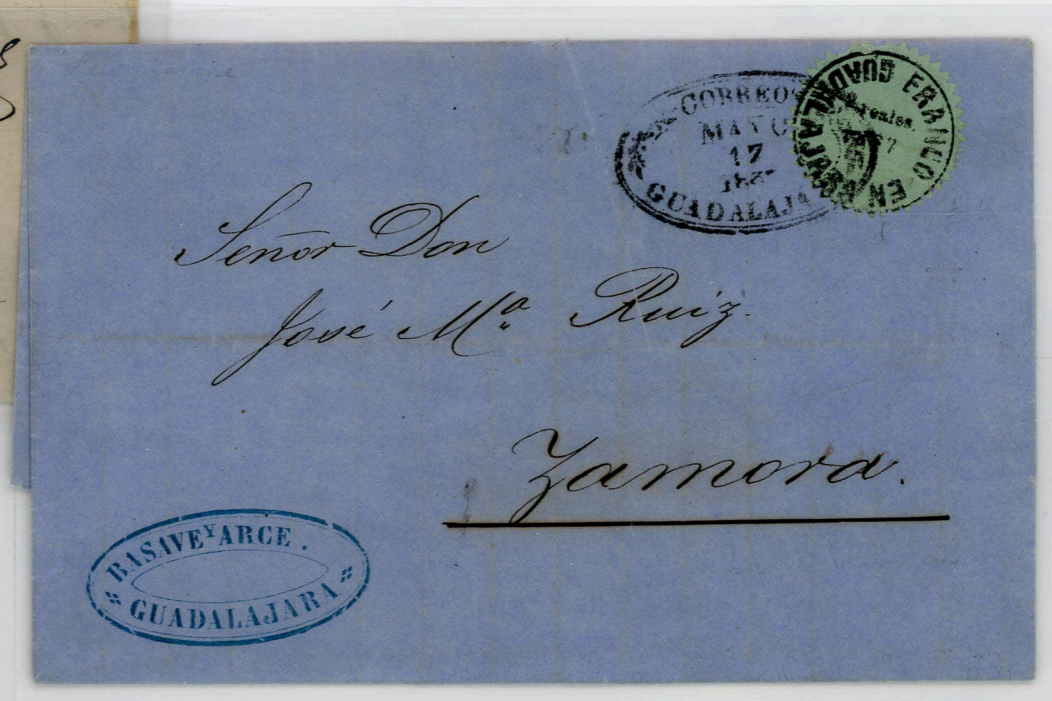 CORREOS
MAYO
17
GUADALAJA
FRANCO EN GUADALAJARA
Señor Don
José Mª Ruiz.
Zamora.
BASAVE Y ARCE.
GUADALAJARA